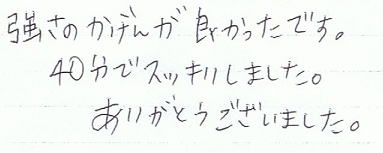 強さのかげんが良かったです。
40分でスッキリしました。
ありがとうございました。